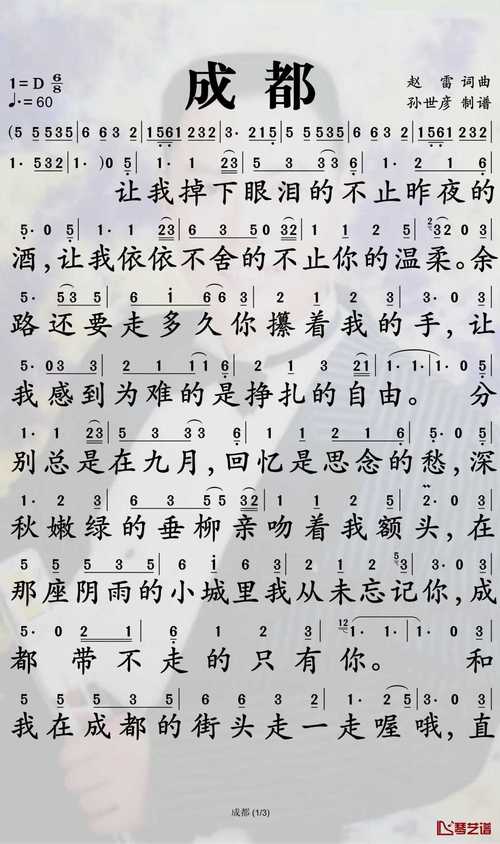 成都
1=D 6/8
♩.=60
赵雷 词曲
孙世彦 制谱
(5 5 535 | 6 6 3 6 0 2 | 1561 232 | 3· 215 | 5 5 535 | 6 6 3 6 3 2 | 1561 232 |
1· 532 | 1· )0 5 | 1· 1 23 | 5 3 3 6 | 1· 1 2 1 6 |
让我掉下眼泪的不止昨夜的
5· 0 5 | 1· 1 23 | 6 3 50 32 | 1 2 1 2 | 2 32 0 3 |
酒,让我依依不舍的不止你的温柔。余
5· 53 5 | 6 i 6 6 3 | 2 1 2 3 | 3· 0 3 |
路还要走多久你攥着我的手,让
5·0 3 3 | 2 1 1 6 | 2 1 3 21 | 1· 1· | 1· 0 5 |
我感到为难的是挣扎的自由。 分
1· 1 23 | 5 3 3 3 6 | 1 1 2 1 6 | 5· 0 5 |
别总是在九月,回忆是思念的愁,深
1· 2 3 | 6 3 3 5 5 32 | 1 2 1 2 | 3· 0 3 |
秋嫩绿的垂柳亲吻着我额头,在
5 5 5 5 3 5 | 6 i 6 3 | 2 1 2 3 | 53· 0 3 |
那座阴雨的小城里我从未忘记你,成
5· 0 2 1 | 6 1 2 3 | 121· 1· | 1· 0 3 |
都 带不走的只有你。 和
5 5 5 3 5 | 6 6 3 2 | 1· 2 5 | 3· 0 3 |
我在成都的街头走一走喔哦,直
成都 (1/3)
琴艺谱